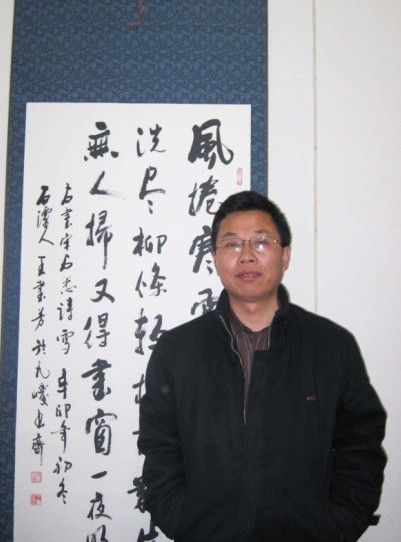 風捲寒雲
洗尽柳條輕檐前數片
無人掃又得書窗一夜明
右書詩雪辛卯年初冬
石潭人王業芳於九峻山齋